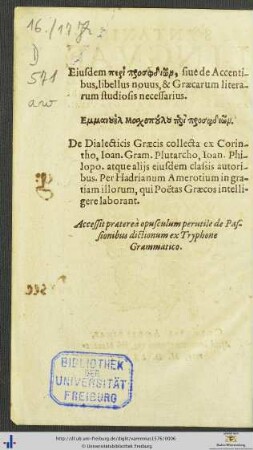 16./17. Jh.
D
571
Eiusdem περὶ προσῳδιῶν, siue de Accenti
bus, libellus nouus, & Græcarum litera
rum studiosis necessarius.
Εμμανυὴλ Μοσχοπύλυ περὶ προσῳδιῶν.
De Dialecticis Græcis collecta ex Corin-
tho, Ioan. Gram. Plutarcho, Ioan. Phi-
lopo. atque alijs eiusdem classis autori
bus. Per Hadrianum Amerotium in gra
tiam illorum, qui Poëtas Græcos intelli
gere laborant.
Accessit præterea opusculum perutile de Pas-
sionibus dictionum ex Tryphone
Grammatico.
BIBLIOTHEK
DER
UNIVERSITÄT
FREIBURG
http://dl.ub.uni-freiburg.de/diglit/varennius1536/0006
© Universitätsbibliothek Freiburg